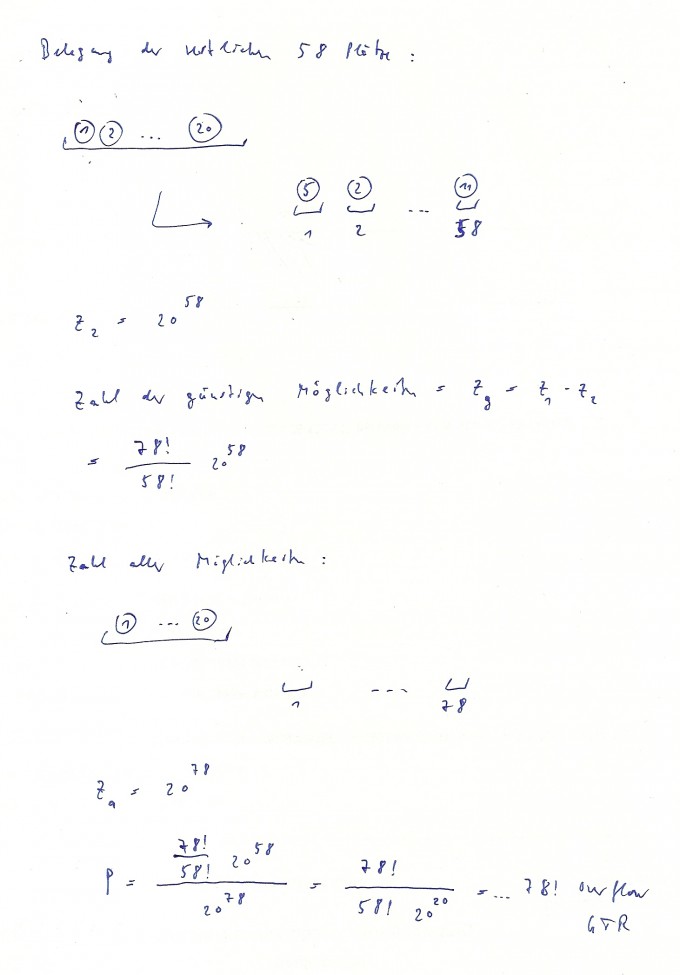 Belegung der restlichen 58 Plätze :
1 2 ... 20
5 2 ... 11
1 2 58
Z₂ = 20⁵⁸
Zahl der günstigen Möglichkeiten = Z_g = Z₁ · Z₂
= 78!/58! 20⁵⁸
Zahl aller Möglichkeiten :
1 ... 20
1 ... 78
Z_a = 20⁷⁸
P = (78!/58! 20⁵⁸)/20⁷⁸ = 78!/(58! 20²⁰) = ... 78! overflow
GTR